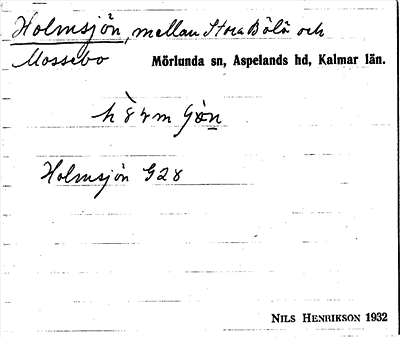 Holmsjön, mellan Stora Bölö och
Mossebo Mörlunda sn, Aspelands hd, Kalmar län.
Holmsjön G28
NILS HENRIKSON 1932